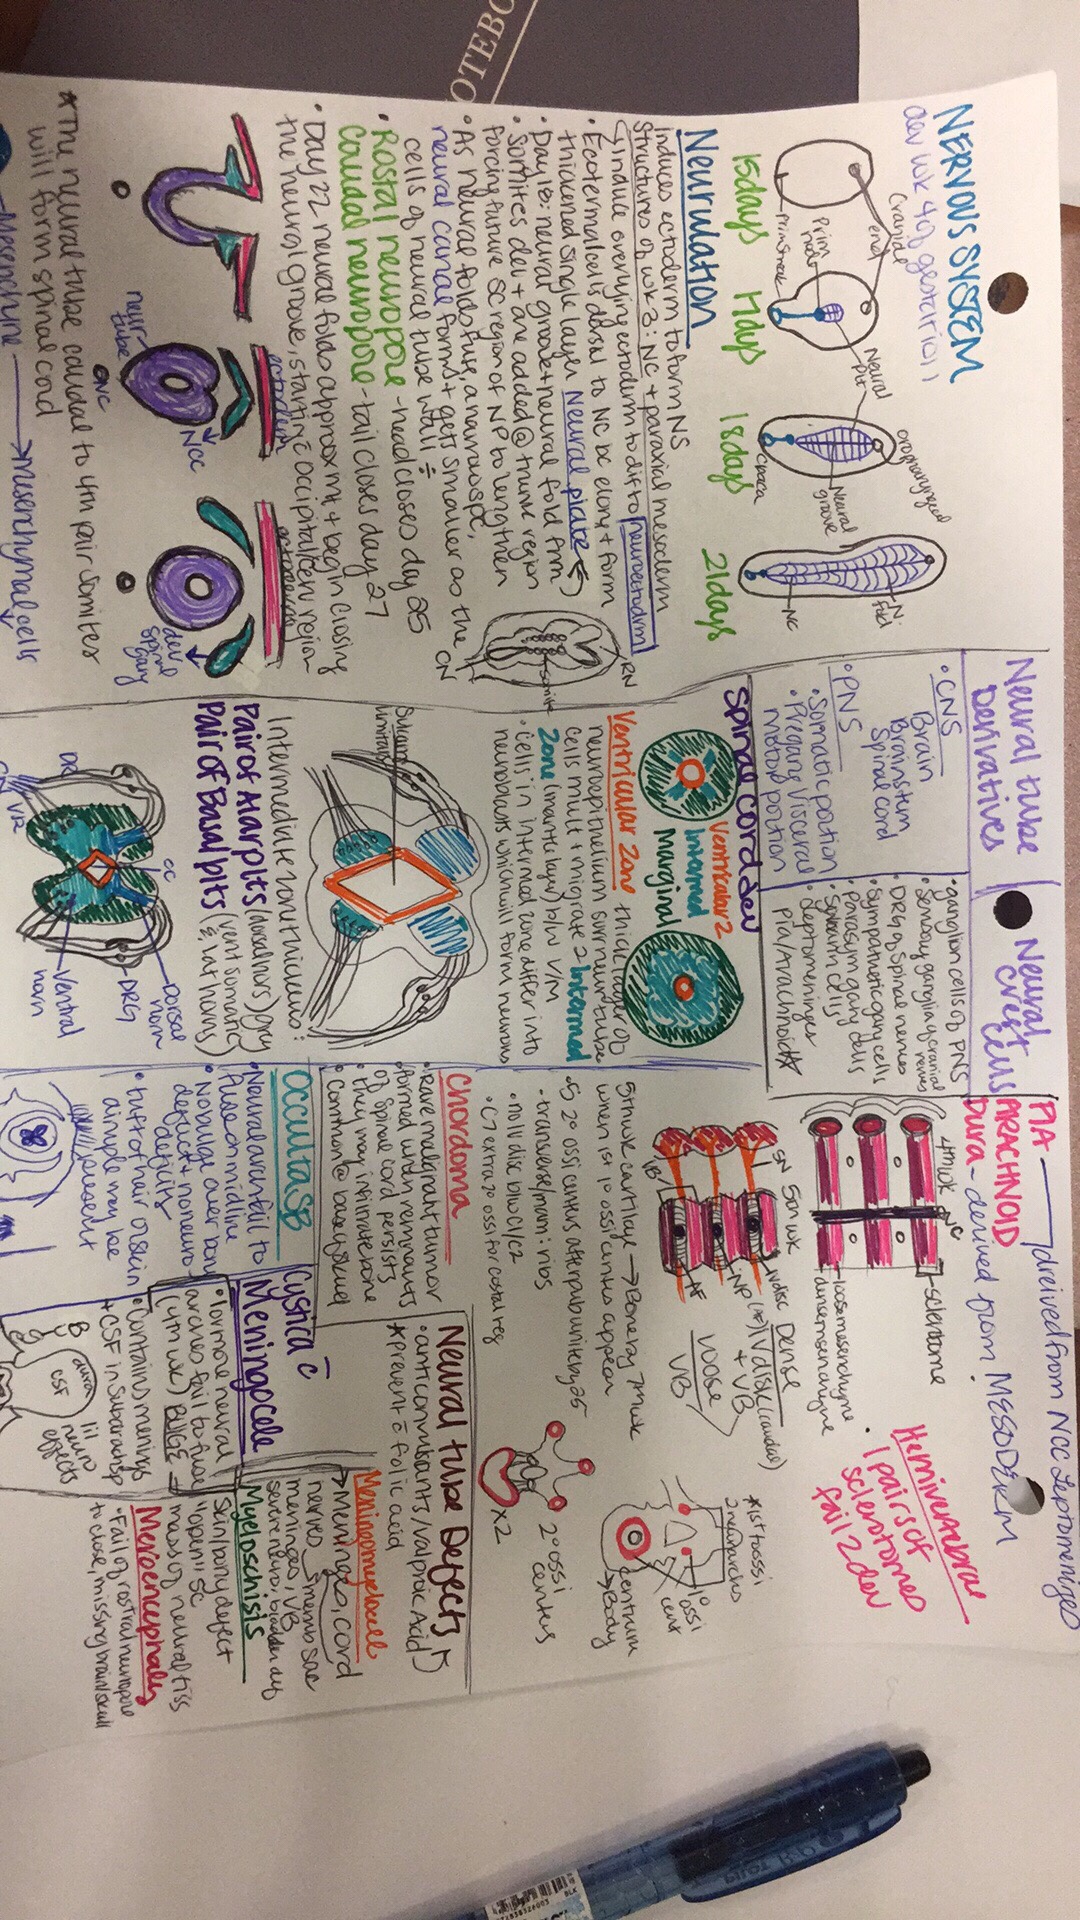 NOTEBO
NERVOUS SYSTEM
dev wk 4 of gestation
cranial end
Prim node
Prim streak
Neural plt
oropharyngeal
Neural groove
cloaca
N. fold
NC
15days
17days
18days
21days
Neurulation
Induces ectoderm to form NS
structures of wk 3: NC + paraxial mesoderm
↳ induce overlying ectoderm to diff to neuroectoderm
• Ectodermal cells dorsal to NC be elong + form
thickened single layer Neural plate
• Day 18: neural groove + neural fold form
• Somites dev + are added @ trunk region
forcing future SC region of NP to lengthen
• As neural folds fuse, a narrow space,
neural canal forms + gets smaller as the
cells of neural tube wall ÷
RN
somite
CN
• Rostal neuropore - head closes day 25
caudal neuropore - tail closes day 27
• Day 22 neural folds approx mt + begin closing
the neural groove, starting occipital/cerv region
neur tube
NC
NCC
ectoderm
dev spinal gang
* The neural tube caudal to 4th pair somites
will form spinal cord
Mesenchyme → Mesenchymal cells
Neural tube Derivatives
• CNS
Brain
Brainstem
Spinal cord
• PNS
• Somatic potion
• Pregang Visceral
motor portion
Neural Crest Cells
• ganglion cells of PNS
• Sensory ganglia of cranial nerves
• DRG of Spinal nerves
• Sympathetic gang cells
• Parasym gang cells
• Schwann cells
• leptomeninges
Pia/Arachnoid*
Spinal cord dev
Ventricular Z
Intermed
Marginal
Ventricular Zone thick layer of
neuroepithelium surr neur tube
cells mult + migrate 2 Intermed
Zone (mantle layer) b/w V/M
• cells in intermed zone differ into
neuroblasts which will form neurons
Sulcus limitans
Intermediate zone thickens:
Pair of Alar plts (dorsal horns) gray
Pair of Basal plts (vent somatic
& lat horns)
DR
VR
CC
Dorsal horn
DRG
Ventral horn
PIA
ARACHNOID → dreived from NCC Leptomeninges
Dura - derived from MESODERM
4th wk
NC
sclerotome
loose mesenchyme
dense mesenchyme
Hemivertebrae
• 1 pairs of
sclerotomes
fail 2 dev
SN
5th wk
IV disc
NP
AF
VB
Dense
IV disk (caudal)
+ VB
loose
VB
5th wk cartilage → Boney 7th wk
when 1st 1° ossi centers appear
• 5 2° ossi centers after puberty 25
• transverse/mam: ribs
• no IV disc b/w C1/C2
• C7 extra 2° ossi for costal reg
* 1st to ossi
2 neur arches
1° ossi cent
centrum
→ Body
2° ossi
centers
x2
Chordoma
• Rare malignant tumor
formed when remnants
of spinal cord persists
• they may infiltrate bone
• Common @ base of skull
Neural tube Defects
• anticonvulsants/valproic Acid
* prevent c̄ folic acid
Occulta SB
• Neural arws fail to
fuse on midline
• No bulge over bony
defect + no neuro
deficits
• tuft of hair or skin
dimple may be
present
Cystica c̄
Meningocele
• 1 or more neural
arches fail to fuse
(4th wk) BULGE
• contains menings
+ CSF in subarach sp
B
dura
CSF
lil
neuro
effects
Meningomyelocele
→ Meninges, cord
nerves
meninges, VB
severe neuro, bladder dys
Myeloschisis
skin/bony defect
"open" SC
mass of neural tiss
Meroencephaly
• Fail of rostral neuropore
to close, missing brain/skull